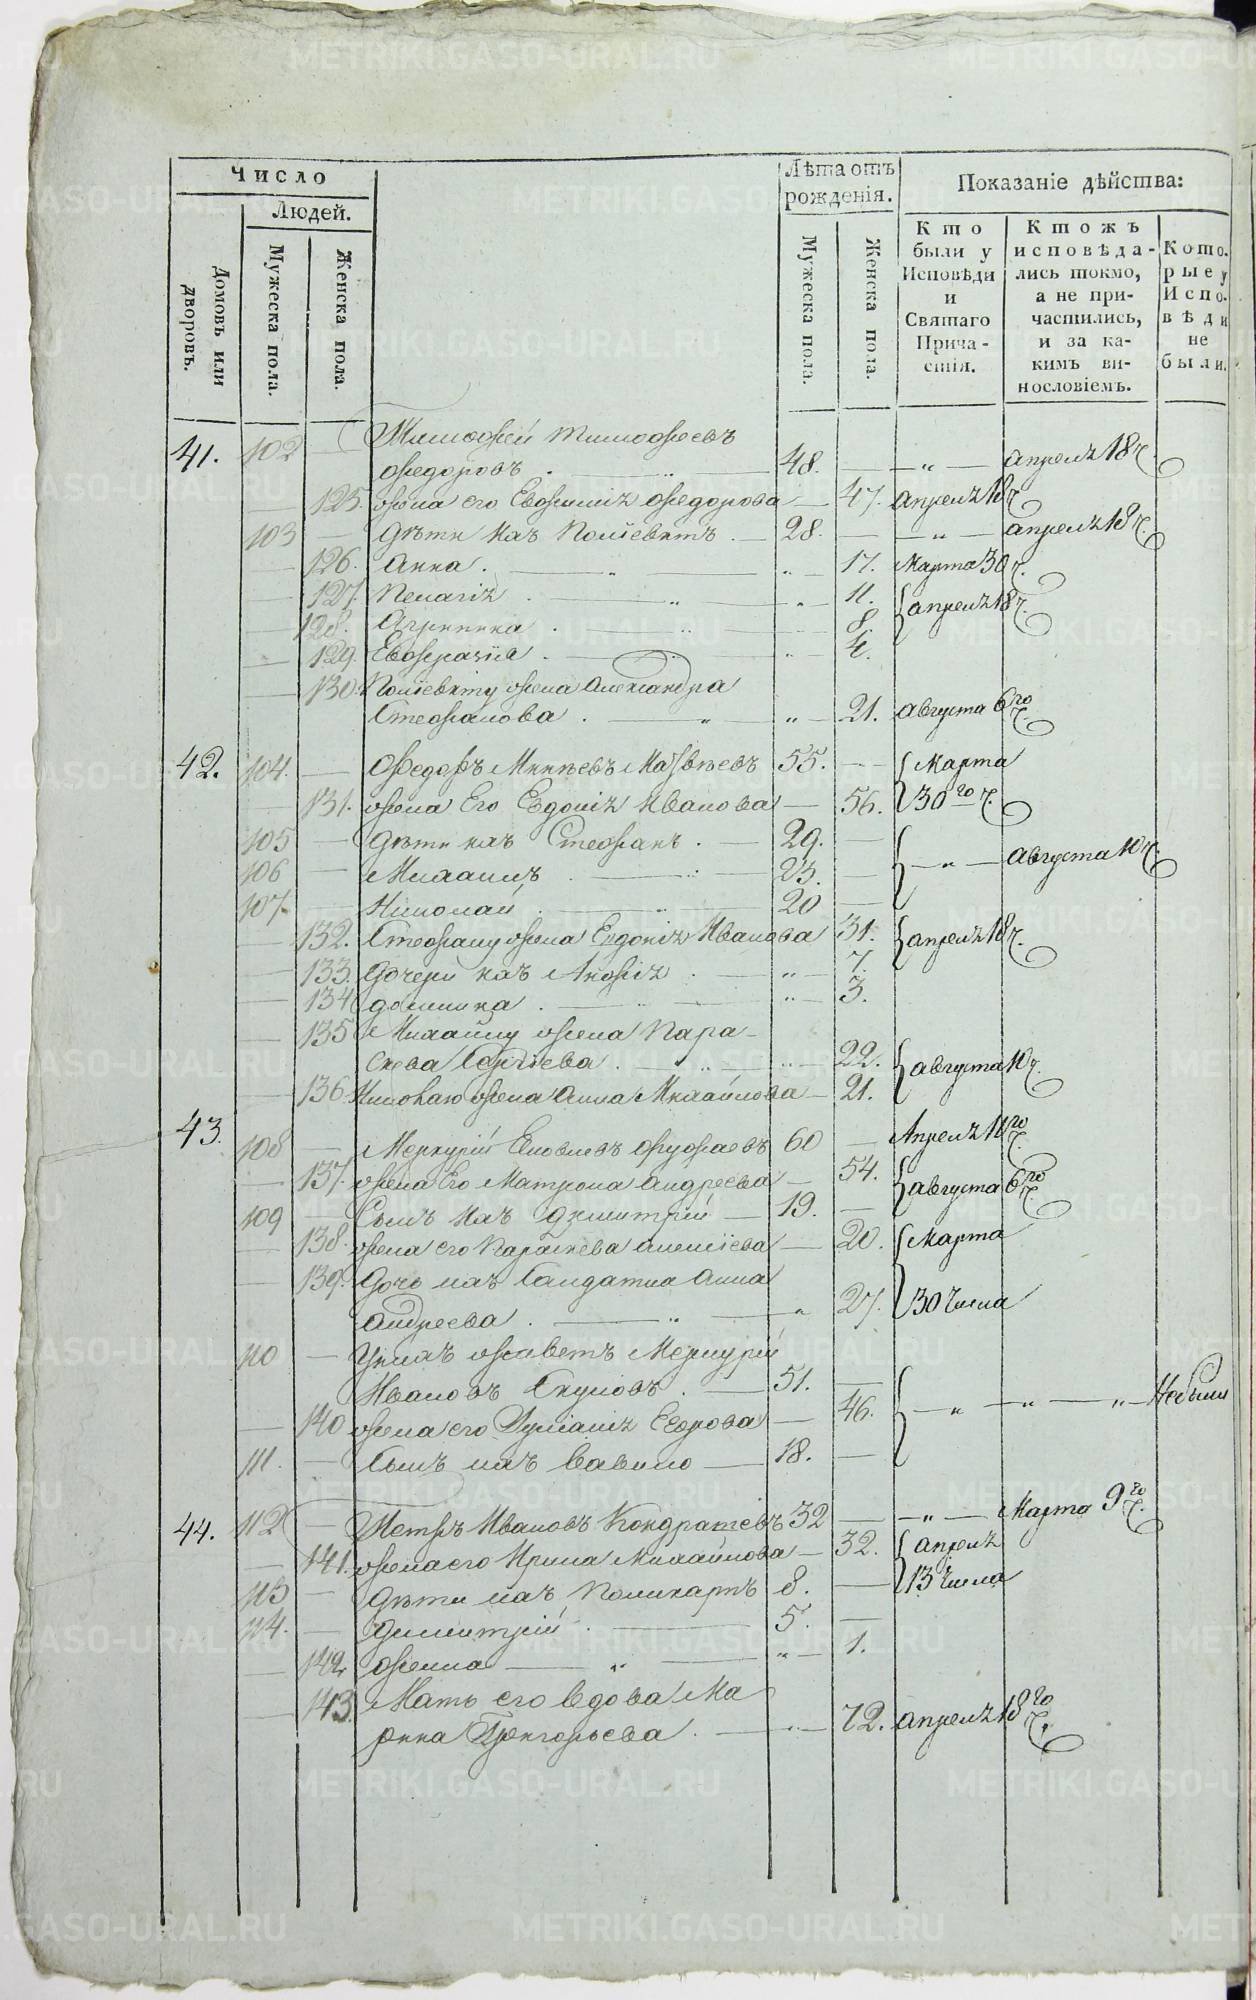 Число
Людей.
Домовъ или дворовъ.
Мужеска пола.
Женска пола.
Лѣта отъ рожденія.
Мужеска пола.
Женска пола.
Показаніе дѣйства:
Кто были у Исповѣди и Святаго Причастія.
Ктожъ исповѣдались токмо, а не причастились, и за какимъ винословіемъ.
Которые у Исповѣди не были.
41. 102 — Тимофей Тимофеевъ
Федоровъ . — „ — 48. — „ — апреля 18 ч.
— 125. жена его Евфимія Федорова — 47. апреля 18 ч.
103 — дѣти ихъ Полиевктъ . — 28. — „ — апреля 18 ч.
— 126. Анна . — „ — „ — 17. Марта 30 ч.
— 127. Пелагія . — „ — „ — 11. апреля 18 ч.
— 128. Агрипина . — „ — 8.
— 129. Евфразія . — „ — 4.
— 130. Полиевкту жена Александра
Стефанова . — „ — „ — 21. августа 6го ч.
42. 104. — Федоръ Минѣевъ Матвѣевъ 55. — Марта
— 131. жена Его Евдокія Иванова — 56. 30го ч.
105 — дѣти ихъ Стефанъ . — 29. —
106 — Михаилъ . — 23. — „ — августа 10 ч.
107. — Николай . — 20 —
— 132. Стефану жена Евдокія Иванова 31. апреля 18 ч.
— 133. дочери ихъ — „ — 7.
— 134 домника . — „ — 3.
— 135 Михаилу жена Пара-
скева Сергіева . — „ — 22. августа 10 ч.
— 136. Николаю жена Анна Михайлова — 21.
43. 108 — Меркурій 60 — Апреля 18го ч.
— 137. жена Его Матрона Андреева — 54. августа 6го ч.
109 — Сынъ ихъ Дмитрій — 19. —
— 138. жена его Параскева Алексіева — 20. Марта
— 139. дочь ихъ Салдатка Анна
Андреева . — „ — „ 27. 30 числа
110 — У нихъ живетъ Меркурій
Ивановъ . — 51. — „ — „ — „ — Небыли
— 140 жена его Егорова — 46.
111. — Сынъ ихъ Вавило — 18. —
44. 112 — Петръ Ивановъ Кондратьевъ 32 — „ — Марта 9го ч.
— 141. жена его Ирина Михайлова — 32. апреля
113 — дѣти ихъ Поликарпъ 8. — 13 числа
114. — димитрій . — 5. —
— 142 — „ — „ — 1.
— 143. Мать его вдова Ма
рина Григорьева . — „ — 72. апреля 18го ч.
METRIKI.GASO-URAL.RU